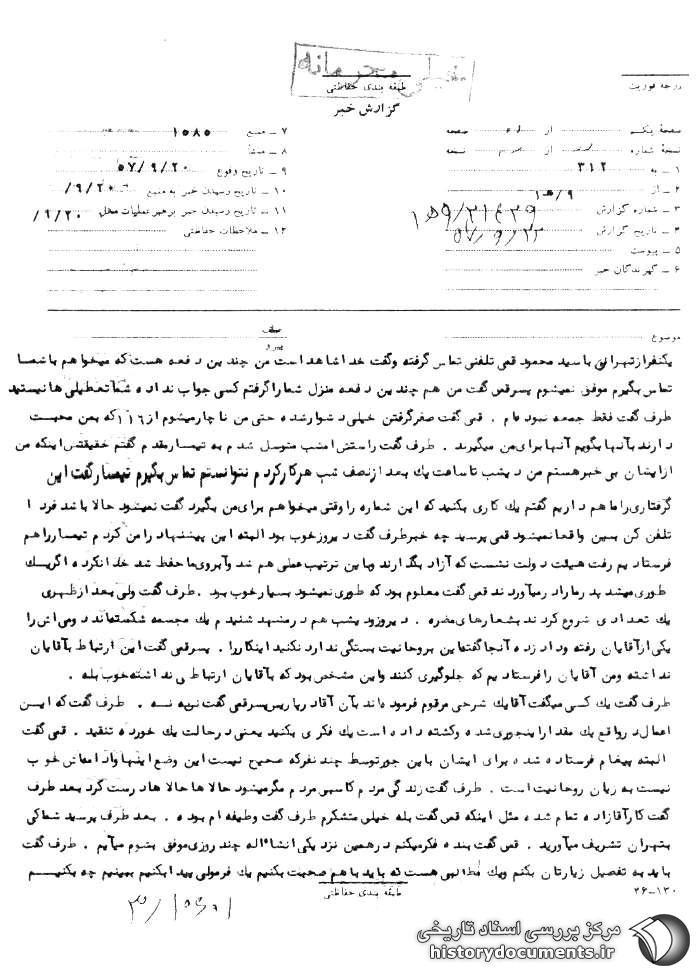 خیلی محرمانه
طبقه بندی حفاظتی
گزارش خبر
درجه فوریت
صفحه یکم از صفحه
نسخه شماره از نسخه
۱ ـ به ۳۱۲
۲ ـ از ۱۵/۹
۳ ـ شماره گزارش
۴ ـ تاریخ گزارش ۵۷/۹/۲۲
۵ ـ پیوست
۶ ـ گیرندگان خبر
۷ ـ منبع ۱۵۸۵
۸ ـ منشأ
۹ ـ تاریخ وقوع ۵۷/۹/۲۰
۱۰ ـ تاریخ رسیدن خبر به منبع ۲۰/۹/
۱۱ ـ تاریخ رسیدن خبر برهبر عملیات محل ۲۰/۹/
۱۲ ـ ملاحظات حفاظتی
موضوع
عطف
پیرو
یکنفر از تهران با سید محمود قمی تلفنی تماس گرفته و گفت خدا شاهد است من چندین دفعه هست که میخواهم با شما
تماس بگیرم موفق نمیشوم پسر قمی گفت من هم چندین دفعه منزل شما را گرفتم کسی جواب نداده شما تعطیلی ها نیستید
طرف گفت فقط جمعه نبوده ام . قمی گفت صفر گرفتن خیلی دشوار شده حتی من ناچار میشوم از ۱۱۶ که بمن محبت
دارند بآنها بگویم آنها برای من میگیرند . طرف گفت راستش امشب متوسل شدم به تیمسار مقدم گفتم حقیقتش اینکه من
از ایشان بی خبر هستم من دیشب تا ساعت یک بعد از نصف شب هر کار کردم نتوانستم تماس بگیرم تیمسار گفت این
گرفتاری را ما هم داریم گفتم یک کاری بکنید که این شماره را وقتی میخواهم برای من بگیرد گفت نمیشود حالا باشد فردا
تلفن کن بمن واقعا نمیشود قمی پرسید چه خبر طرف گفت دیروز خوب بود البته این پیشنهاد را من کردم تیمسار را هم
فرستادیم رفت هیئت دولت نشست که آزاد بگذارند و باین ترتیب عملی هم شد و آبروی ما حفظ شد خدا نکرده اگر یک
طوری میشد پدر ما را در میآوردند قمی گفت معلوم بود که طوری نمیشود بسیار خوب بود . طرف گفت ولی بعد از ظهری
یک تعدادی شروع کردند بشعارهای مضره . دیروز و دیشب هم در مشهد شنیدم یک مجسمه شکسته اند و می آن را
یکی از آقایان رفته و داد زده آنجا گفته این بروحانیت بستگی ندارد نکنید اینکار را . پسر قمی گفت این ارتباط بآقایان
نداشته و من آقایان را فرستادیم که جلوگیری کنند و این مشخص بود که بآقایان ارتباطی نداشته خوب بله .
طرف گفت یک کسی میگفت آقا یک شرحی مرقوم فرموده اند بآن آقا در پاریس پسر قمی گفت نه نه نه . طرف گفت که این
اعمال در واقع یک مقدار اینجوری شده و کشته داده است یک فکری بکنید یعنی در حالت یک خورده تنقید . قمی گفت
البته پیغام فرستاده شده برای ایشان باین جور توسط چند نفر که صحیح نیست این وضع اینها و ادامه اش خوب
نیست به زیان روحانیت است . طرف گفت زندگی مردم کاسبی مردم مگر میشود حالا ها حالا ها درست کرد بعد طرف
گفت کار آقازاده تمام شده مثل اینکه قمی گفت بله خیلی متشکرم طرف گفت وظیفه ام بوده . بعد طرف پرسید شما کی
بتهران تشریف میآورید . قمی گفت بنده فکر میکنم در همین نزدیکی انشاءاله چند روزی موفق بشوم میآیم . طرف گفت
باید به تفصیل زیارتان بکنم و یک مطالبی هست که باید با هم صحبت بکنیم یک فرمولی پیدا بکنیم ببینیم چه بکنیم
طبقه بندی حفاظتی
۲۶-۱۳۰
مرکز بررسی اسناد تاریخی
historydocuments.ir